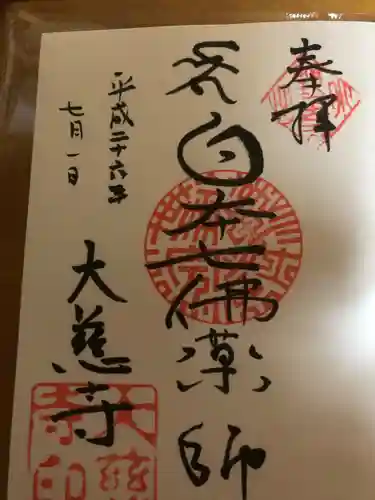 奉拝
日本七佛薬師
平成二十六年
七月一日
大慈寺